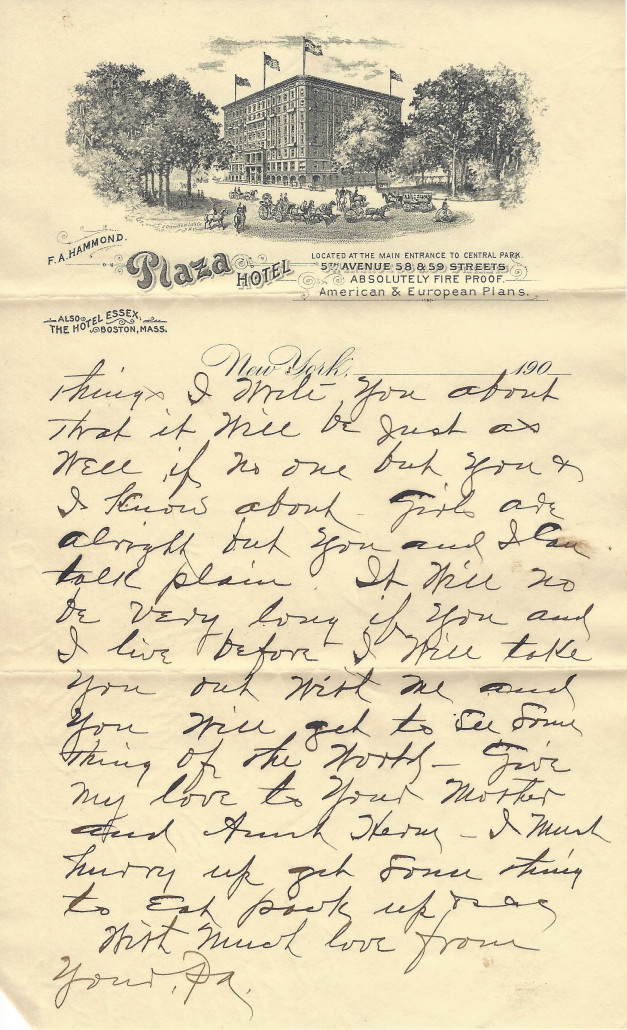 F. A. HAMMOND.
Plaza HOTEL
LOCATED AT THE MAIN ENTRANCE TO CENTRAL PARK.
5TH AVENUE 58 & 59 STREETS
ABSOLUTELY FIRE PROOF.
American & European Plans.
ALSO
THE HOTEL ESSEX,
BOSTON, MASS.
New York, 190
things I Write You about
that it Will be Just as
Well if no one but You &
I Know about - Girls are
alright but You and I Can
talk plain. It Will no
be Very long if You and
I live before I Will take
You out With Me and
You Will get to See Some
thing of the World - Give
My love to Your Mother
and Aunt - I Must
hurry up get Some thing
to Eat pack up &
With Much love from
Your, Pa.